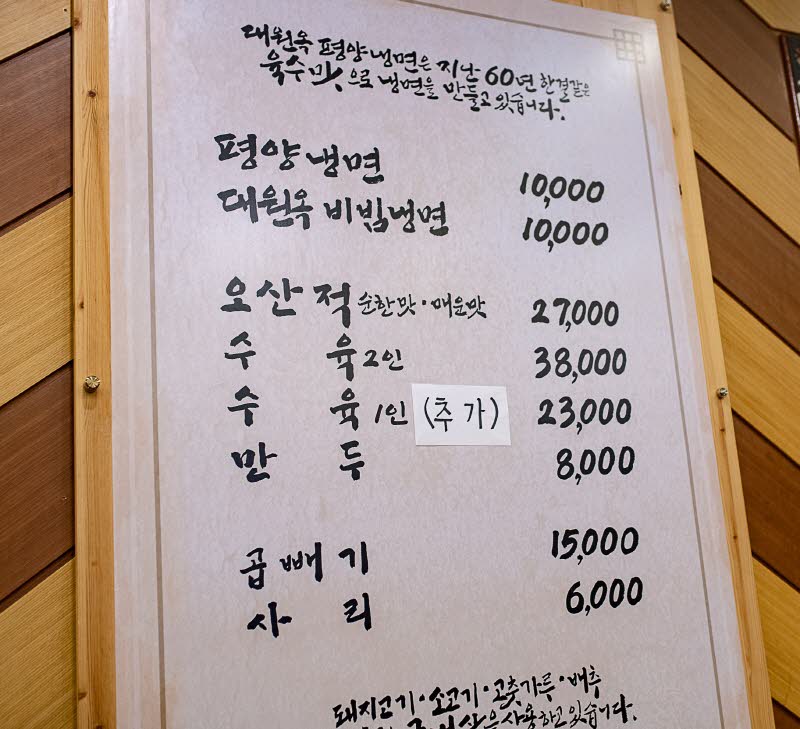 대원옥 평양냉면은 지난 60년 한결같은
육수맛으로 냉면을 만들고 있습니다.
평양냉면 10,000
대원옥 비빔냉면 10,000
오산적 순한맛·매운맛 27,000
수육 2인 38,000
수육 1인 (추가) 23,000
만두 8,000
곱빼기 15,000
사리 6,000
돼지고기·소고기·고춧가루·배추
사용하고있습니다.